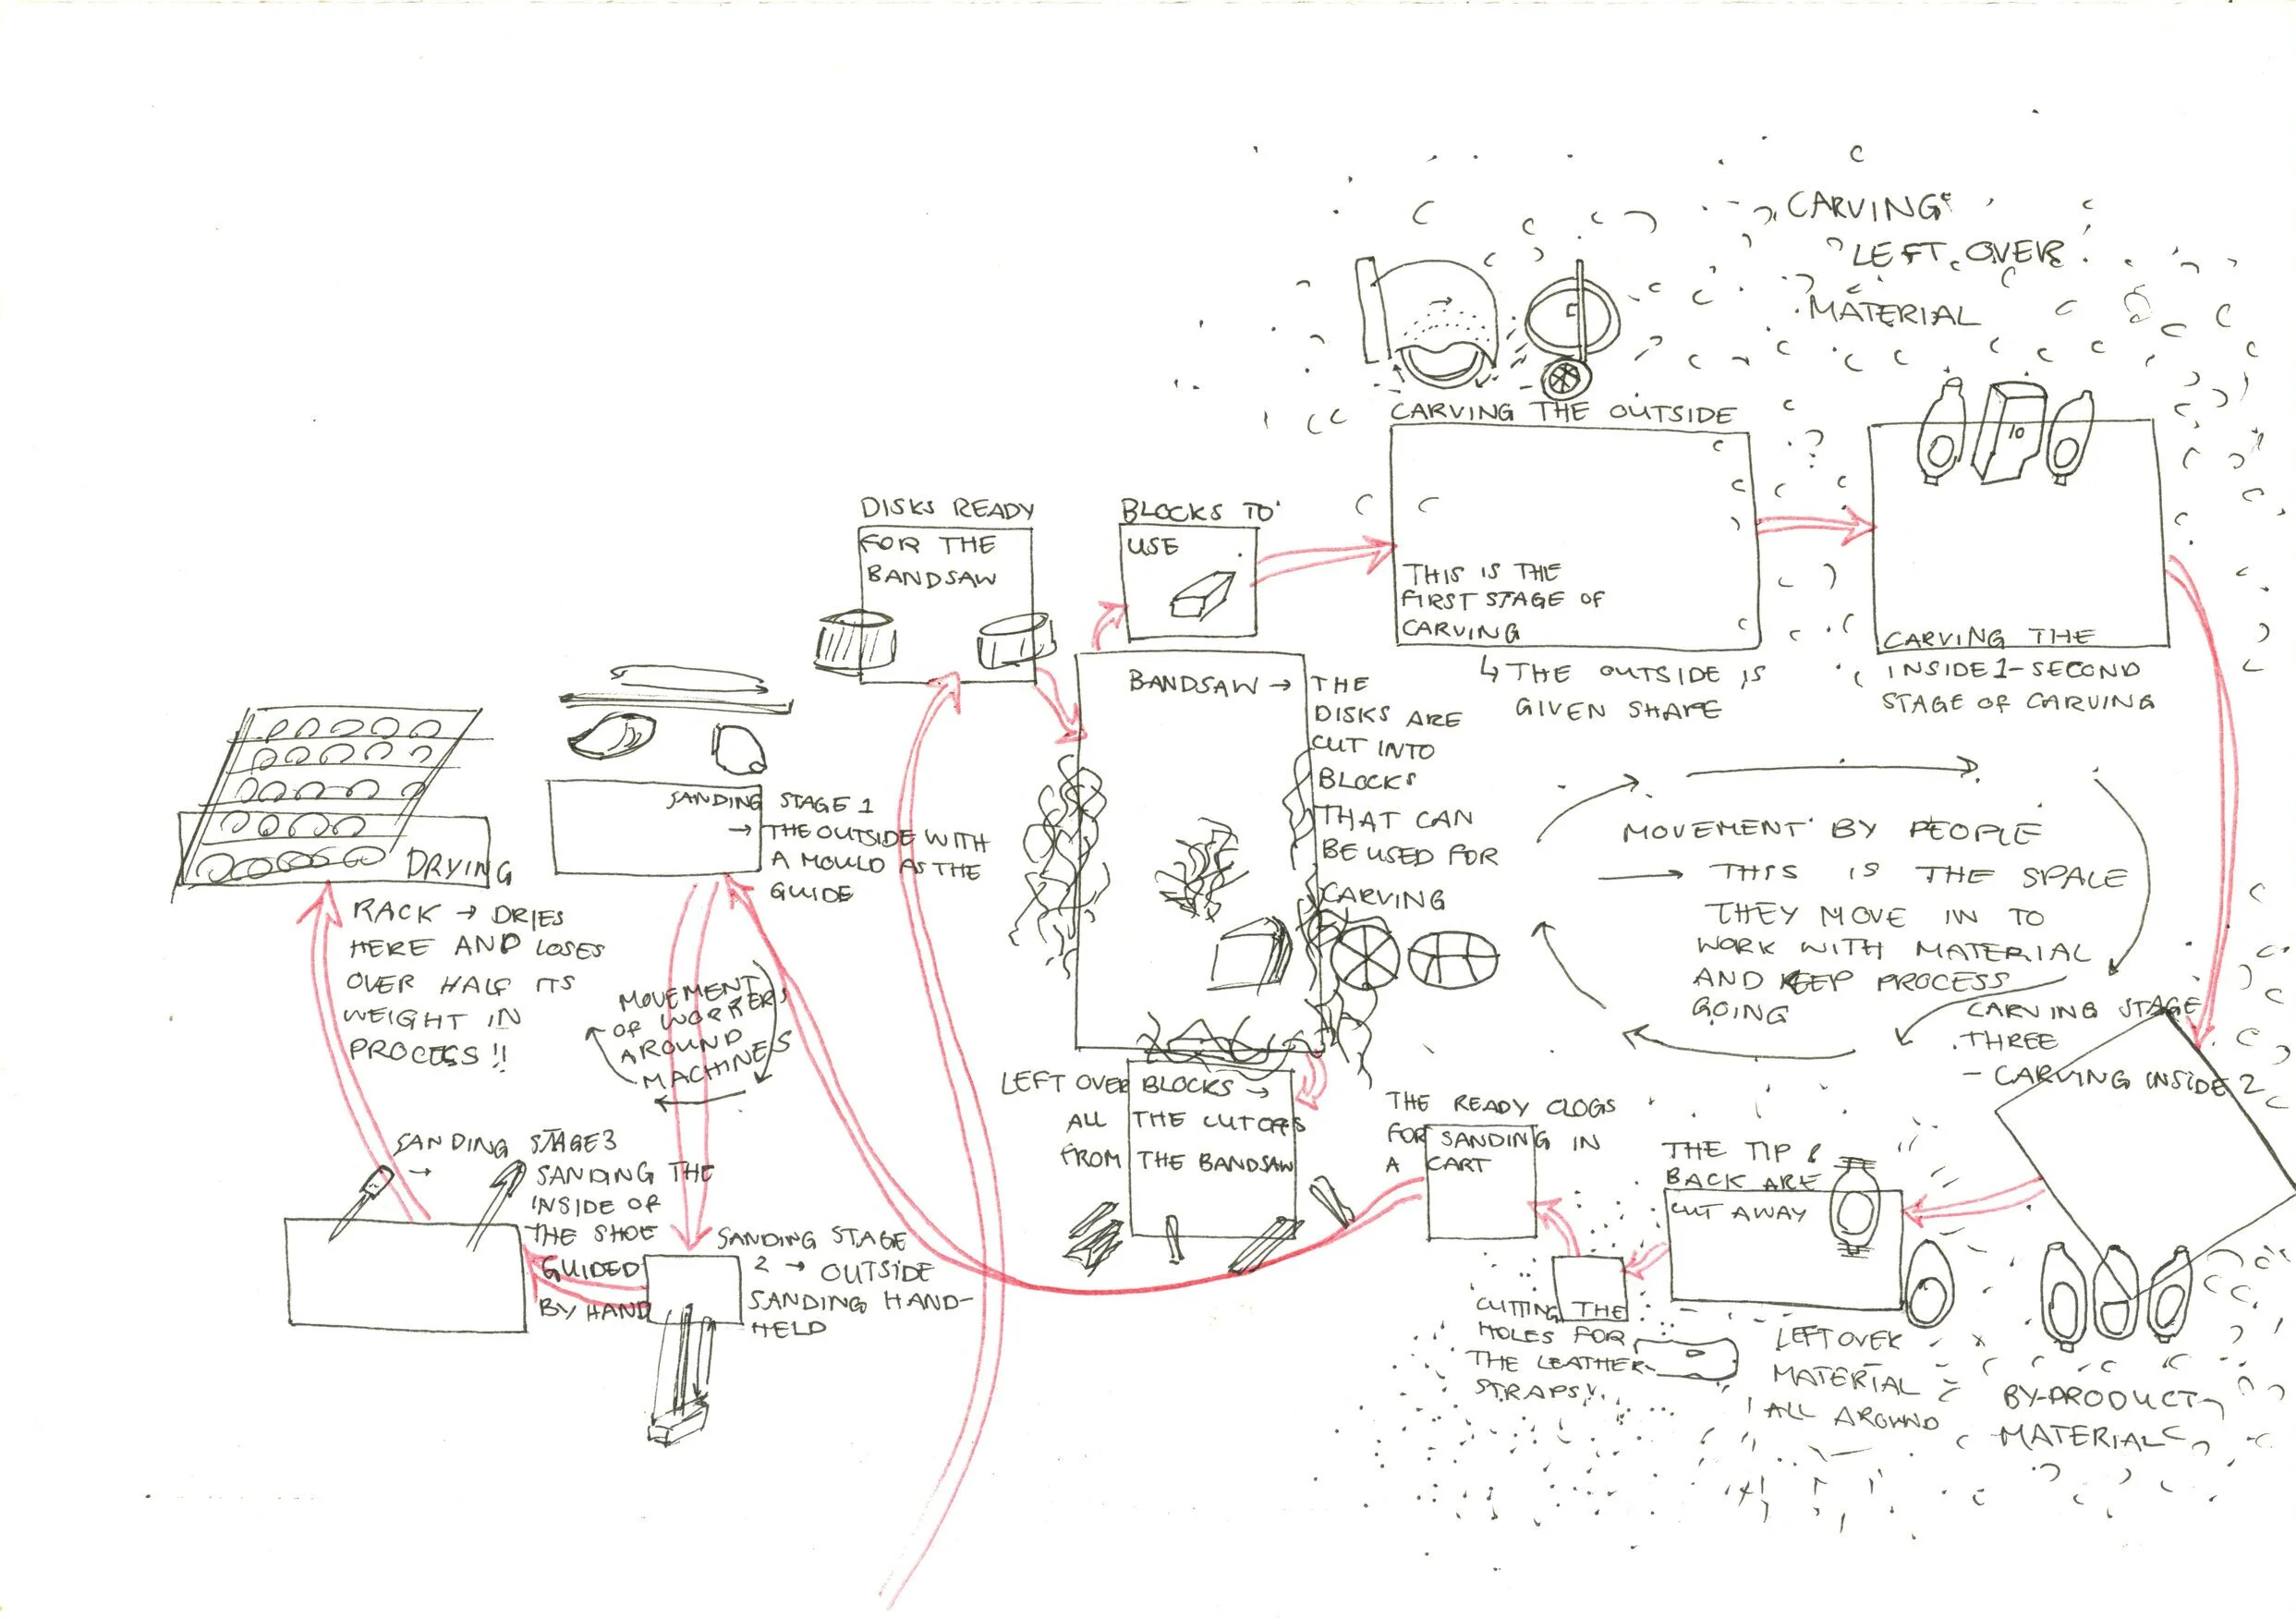 CARVING
LEFT OVER
MATERIAL
CARVING THE OUTSIDE
THIS IS THE
FIRST STAGE OF
CARVING
↳ THE OUTSIDE IS
GIVEN SHAPE
10
CARVING THE
INSIDE 1-SECOND
STAGE OF CARVING
DISKS READY
FOR THE
BANDSAW
BLOCKS TO
USE
BANDSAW → THE
DISKS ARE
CUT INTO
BLOCKS
THAT CAN
BE USED FOR
CARVING
MOVEMENT BY PEOPLE
→ THIS IS THE SPACE
THEY MOVE IN TO
WORK WITH MATERIAL
AND KEEP PROCESS
GOING
CARVING STAGE
THREE
- CARVING INSIDE 2
SANDING STAGE 1
→ THE OUTSIDE WITH
A MOULD AS THE
GUIDE
DRYING
RACK → DRIES
HERE AND LOSES
OVER HALF ITS
WEIGHT IN
PROCESS!!
MOVEMENT
OF WORKERS
AROUND
MACHINES
LEFT OVER BLOCKS →
ALL THE CUTOFFS
FROM THE BANDSAW
THE READY CLOGS
FOR SANDING IN
A CART
THE TIP &
BACK ARE
CUT AWAY
SANDING STAGE 3
→ SANDING THE
INSIDE OF
THE SHOE
GUIDED
BY HAND
SANDING STAGE
2 → OUTSIDE
SANDING HAND-
HELD
CUTTING THE
HOLES FOR
THE LEATHER
STRAPS!
LEFT OVER
MATERIAL
ALL AROUND
BY-PRODUCT
MATERIAL